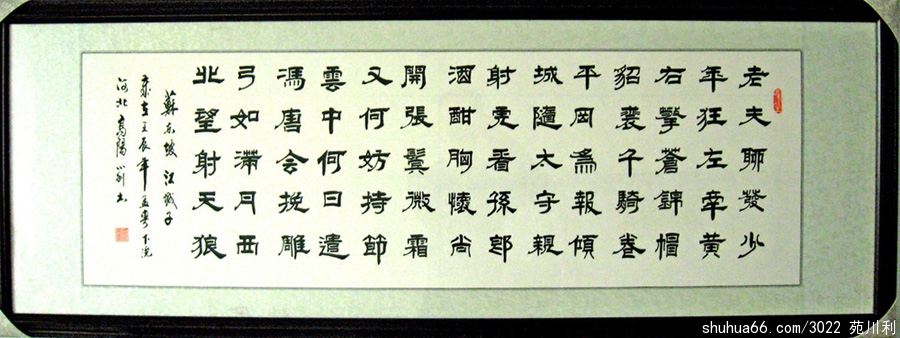 老夫聊發少
年狂左牽黃
右擎蒼錦帽
貂裘千騎卷
平岡爲報傾
城隨太守親
射虎看孫郎
酒酣胸懷尚
開張鬢微霜
又何妨持節
雲中何日遣
馮唐會挽雕
弓如滿月西
北望射天狼
蘇東坡江城子
歲在壬辰年孟春下浣
河北高陽川利书
shuhua66.com/3022 苑川利